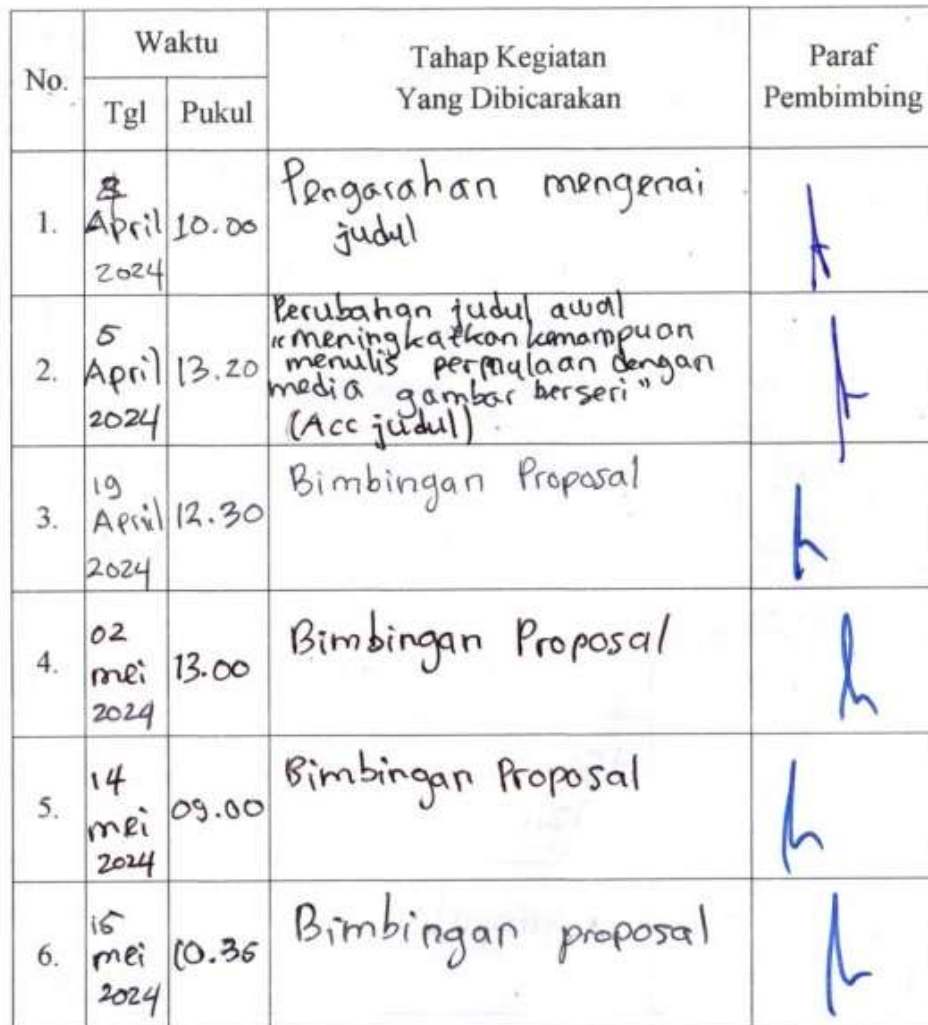 No.
Waktu
Tgl
Pukul
Tahap Kegiatan
Yang Dibicarakan
Paraf
Pembimbing
1.
April
2024
10.00
Pengarahan mengenai
judul
2.
5
April
2024
13.20
Perubahan judul awal
"meningkatkan kemampuan
menulis permulaan dengan
media gambar berseri"
(Acc judul)
3.
19
April
2024
12.30
Bimbingan Proposal
4.
02
mei
2024
13.00
Bimbingan Proposal
5.
14
mei
2024
09.00
Bimbingan Proposal
6.
15
mei
2024
10.35
Bimbingan proposal